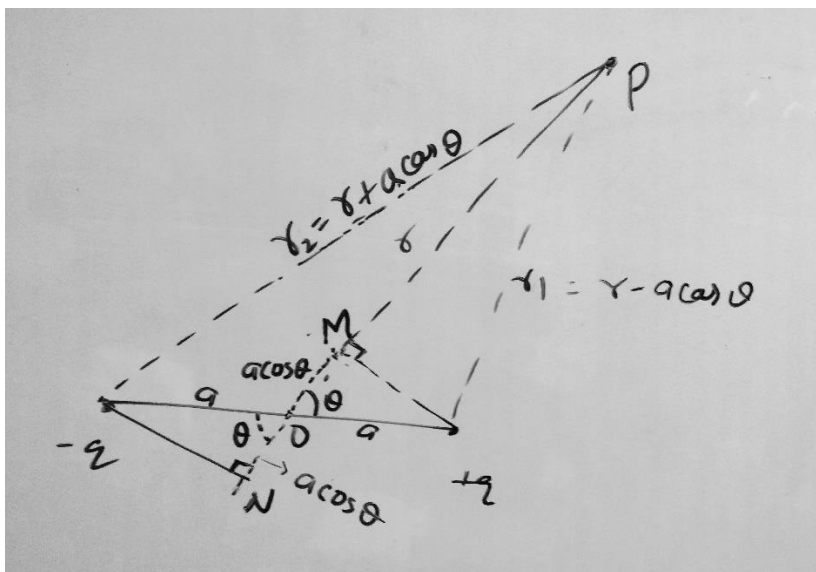 P
r₂ = r + a cos θ
r
r₁ = r - a cos θ
M
a cos θ
a
θ
θ
O
a
-q
N
a cos θ
+q